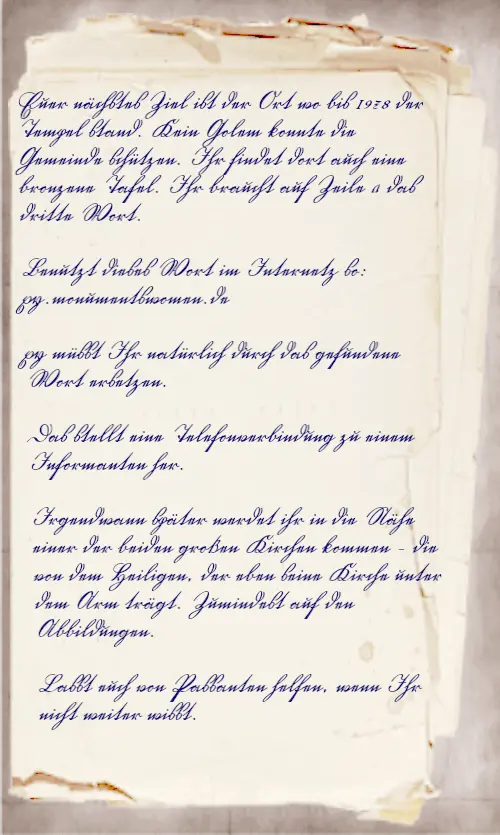 Euer nächstes Ziel ist der Ort wo bis 1938 der
Tempel stand. Kein Golem konnte die
Gemeinde schützen. Ihr findet dort auch eine
bronzene Tafel. Ihr braucht auf Zeile das
dritte Wort.
Benutzt dieses Wort im Internetz so:
xy.monumentswomen.de
xy müsst Ihr natürlich durch das gefundene
Wort ersetzen.
Das stellt eine Telefonverbindung zu einem
Informanten her.
Irgendwann später werdet ihr in die Nähe
einer der beiden großen Kirchen kommen - die
von dem Heiligen, der eben seine Kirche unter
dem Arm trägt. Zumindest auf den
Abbildungen.
Lasst euch von Passanten helfen, wenn Ihr
nicht weiter wisst.